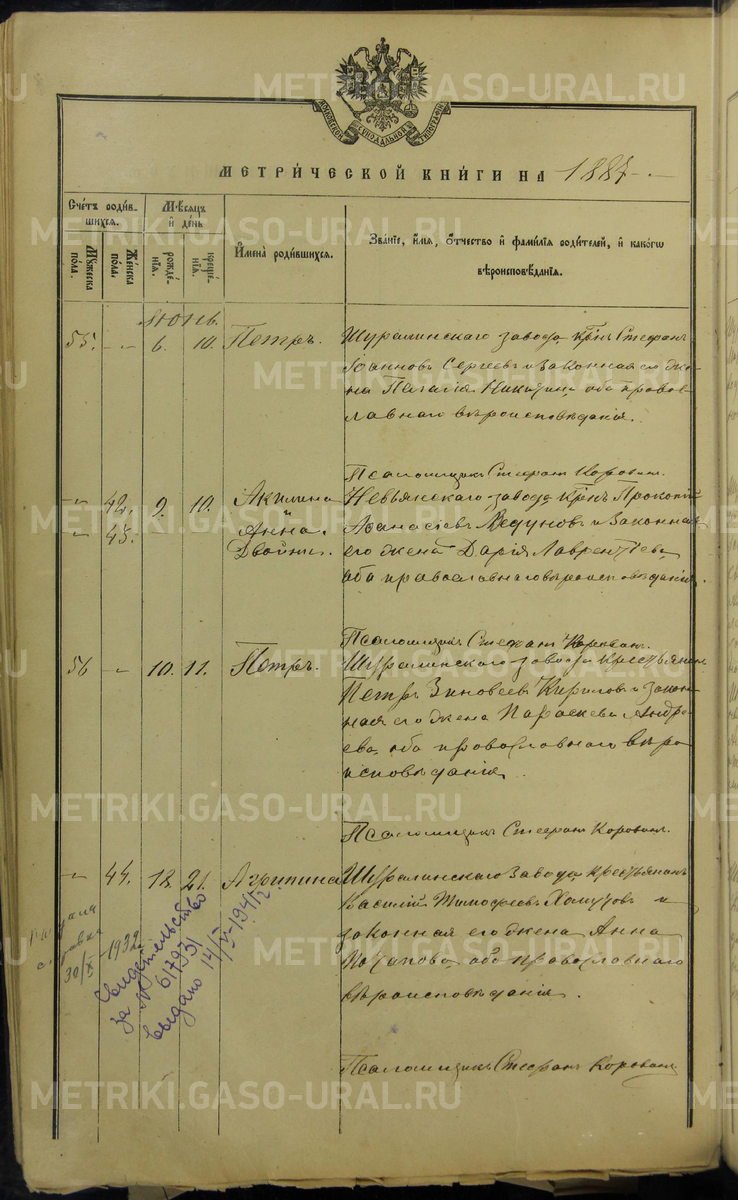 МОСКОВСКОЙ СѴНОДАЛЬНОЙ ТИПОГРАФІИ
МЕТРИ́ЧЕСКОЙ КНИ́ГИ НА 1887
Сче́тъ роди́вшихся.
Мꙋ́жеска по́ла.
Же́нска по́ла.
Мѣ́сяцъ и҆ де́нь
рожде́нїѧ.
креще́нїѧ.
И҆мена̀ роди́вшихся.
Зва́нїе, и҆́мя, ѻ҆́тчество и҆ фами́лїя роди́телей, и҆ како́гѡ вѣроисповѣ́данїя.
Июнь.
55. " 6. 10. Петръ.
Шуралинскаго завода кр͠нъ Стефанъ
Іоанновъ Сергеевъ и законная его же-
на Пелагія Никитина оба право-
славнаго вѣроисповѣданія.
Псаломщикъ Стефанъ Коровинъ.
" 42. 9. 10. Акилина
" 43.
и
Анна.
Двойни.
Невьянскаго завода кр͠нъ Прокопій
Афанасіевъ Медуновъ и законная
его жена Дарія Лаврентіева
оба православнаго вѣроисповѣданія.
Псаломщикъ Стефанъ Коровинъ.
56 " 10. 11. Петръ.
Шуралинскаго завода крестьянинъ
Петръ Зиновеевъ Кириловъ и закон-
ная его жена Параскева Андре-
ева, оба православнаго вѣро
исповѣданія.
Псаломщикъ Стефанъ Коровинъ.
" 44. 18. 21. Агрипина
Шуралинскаго завода крестьянинъ
Василій Тимофеевъ Хомутовъ и
законная его жена Анна
Потапова оба православнаго
вѣроисповѣданія.
Псаломщикъ Стефанъ Коровинъ.
30/X 1932
Свидетельство
за № 617931
выдано 14/V-1941 г
METRIKI.GASO-URAL.RU